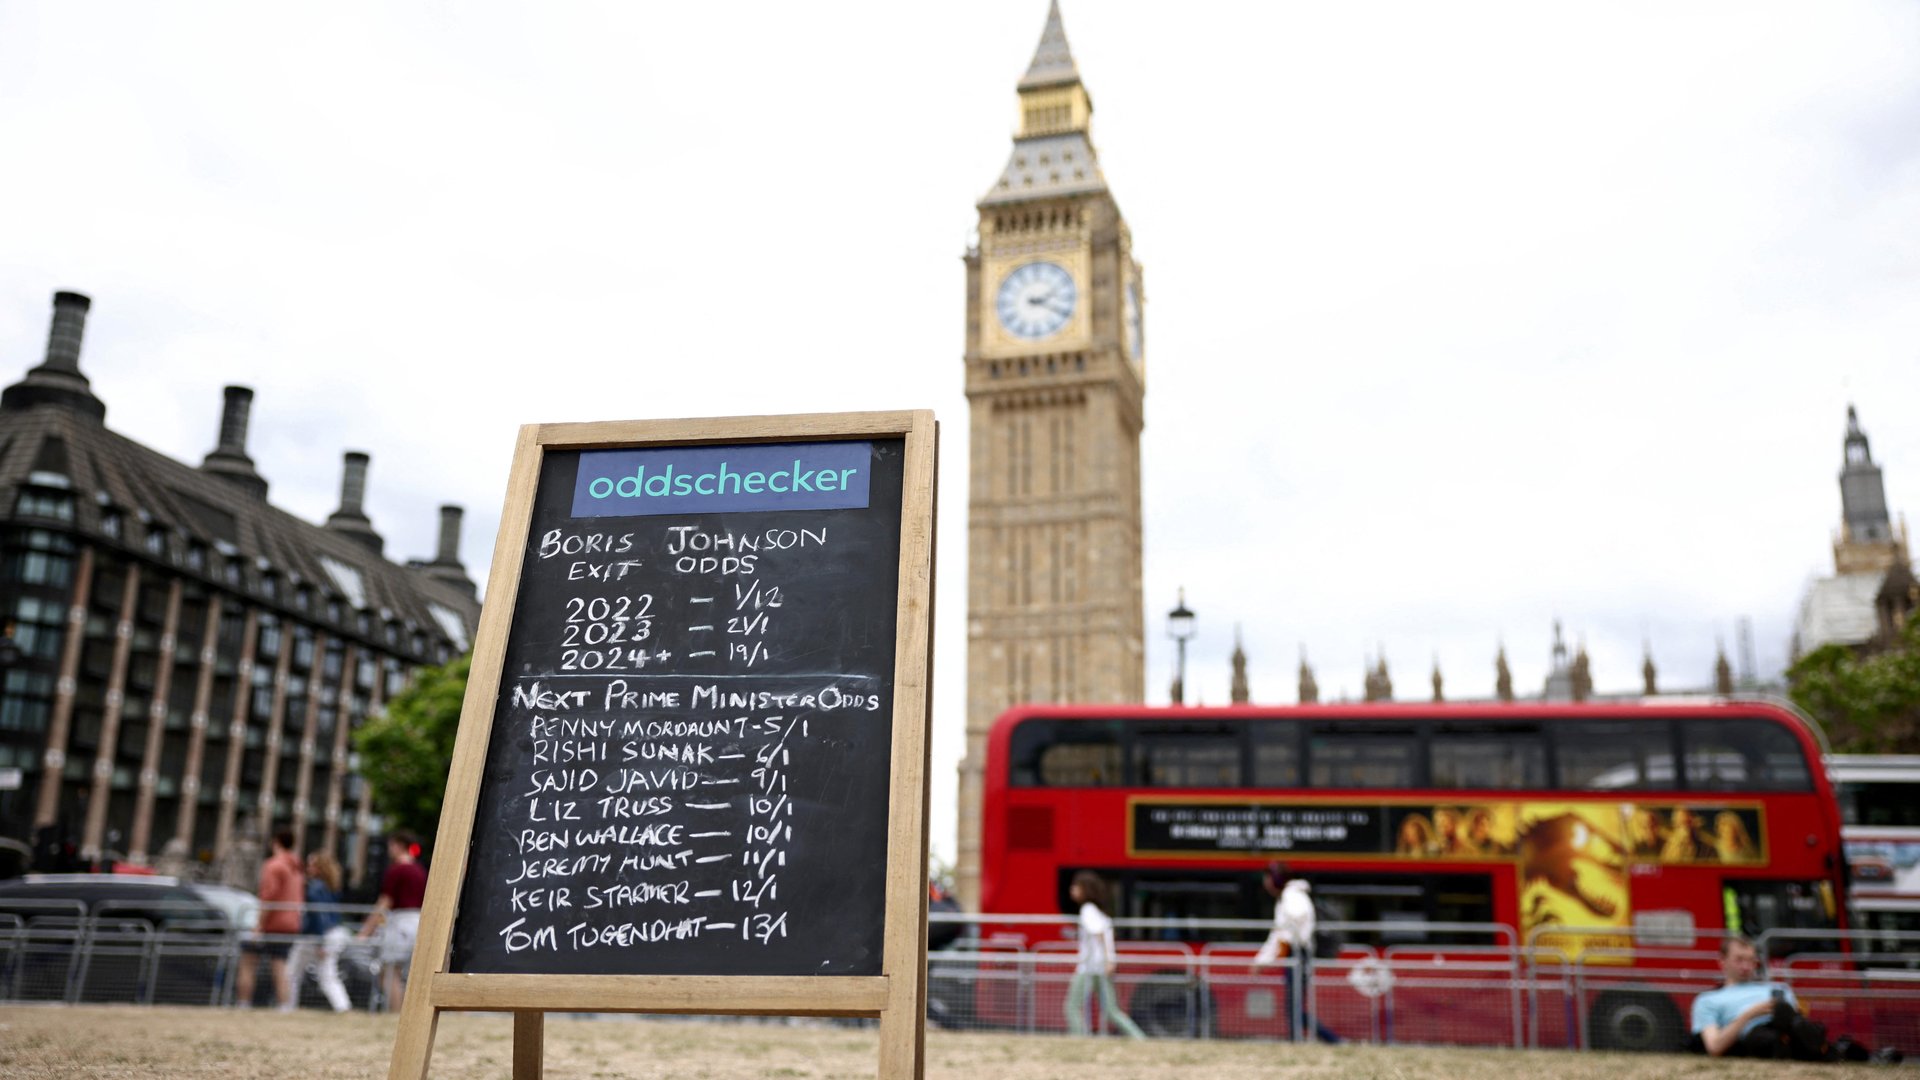 oddschecker
BORIS JOHNSON
EXIT ODDS
2022 - 1/12
2023 - 21/1
2024+ - 19/1
NEXT PRIME MINISTER ODDS
PENNY MORDAUNT - 5/1
RISHI SUNAK - 6/1
SAJID JAVID - 9/1
LIZ TRUSS - 10/1
BEN WALLACE - 10/1
JEREMY HUNT - 11/1
KEIR STARMER - 12/1
TOM TUGENDHAT - 13/1